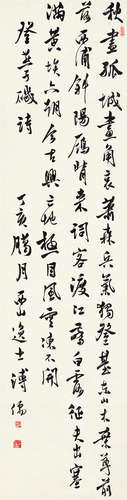 秋盡孤城畫角哀蕭森兵氣獨登臺東山木葉尊前
落西浦斜陽雁背來詞客渡江白露征夫出塞
滿黃埃六朝今古興亡地極目風雲凍不開
登燕子磯詩
丁亥臘月西山逸士溥儒